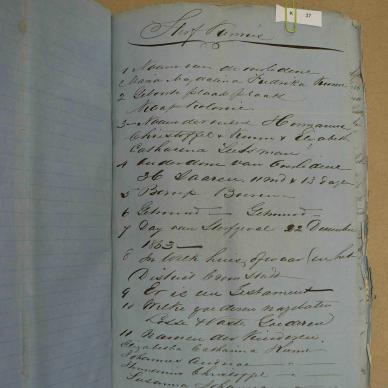 K 37
Sterf Kennis
1 Naam van de overledene
Maria Magdalena Fredrika Kunn
2 Geboorte plaats plaats
Kaap Kolonie
3 Naam der ouders Hermanus
Christoffel Kunn & Elizabeth
Catharina
4 Ouderdom van Overledene
36 Jaaren 11 md & 13 dagen
5 Beroep Boeren
6 Getrouwd — Getrouwd —
7 Dag van Sterfgeval 22 December
1863 —
8 In welk huis, of waar in het
District
9 Er is een Testament
10 Welke goederen nagelaten
Losse & Vaste Goederen
11 Namen der Kinderen
Elizabetha Catharina
Johannes
Hermanus Christoffel
Susanna Johanna